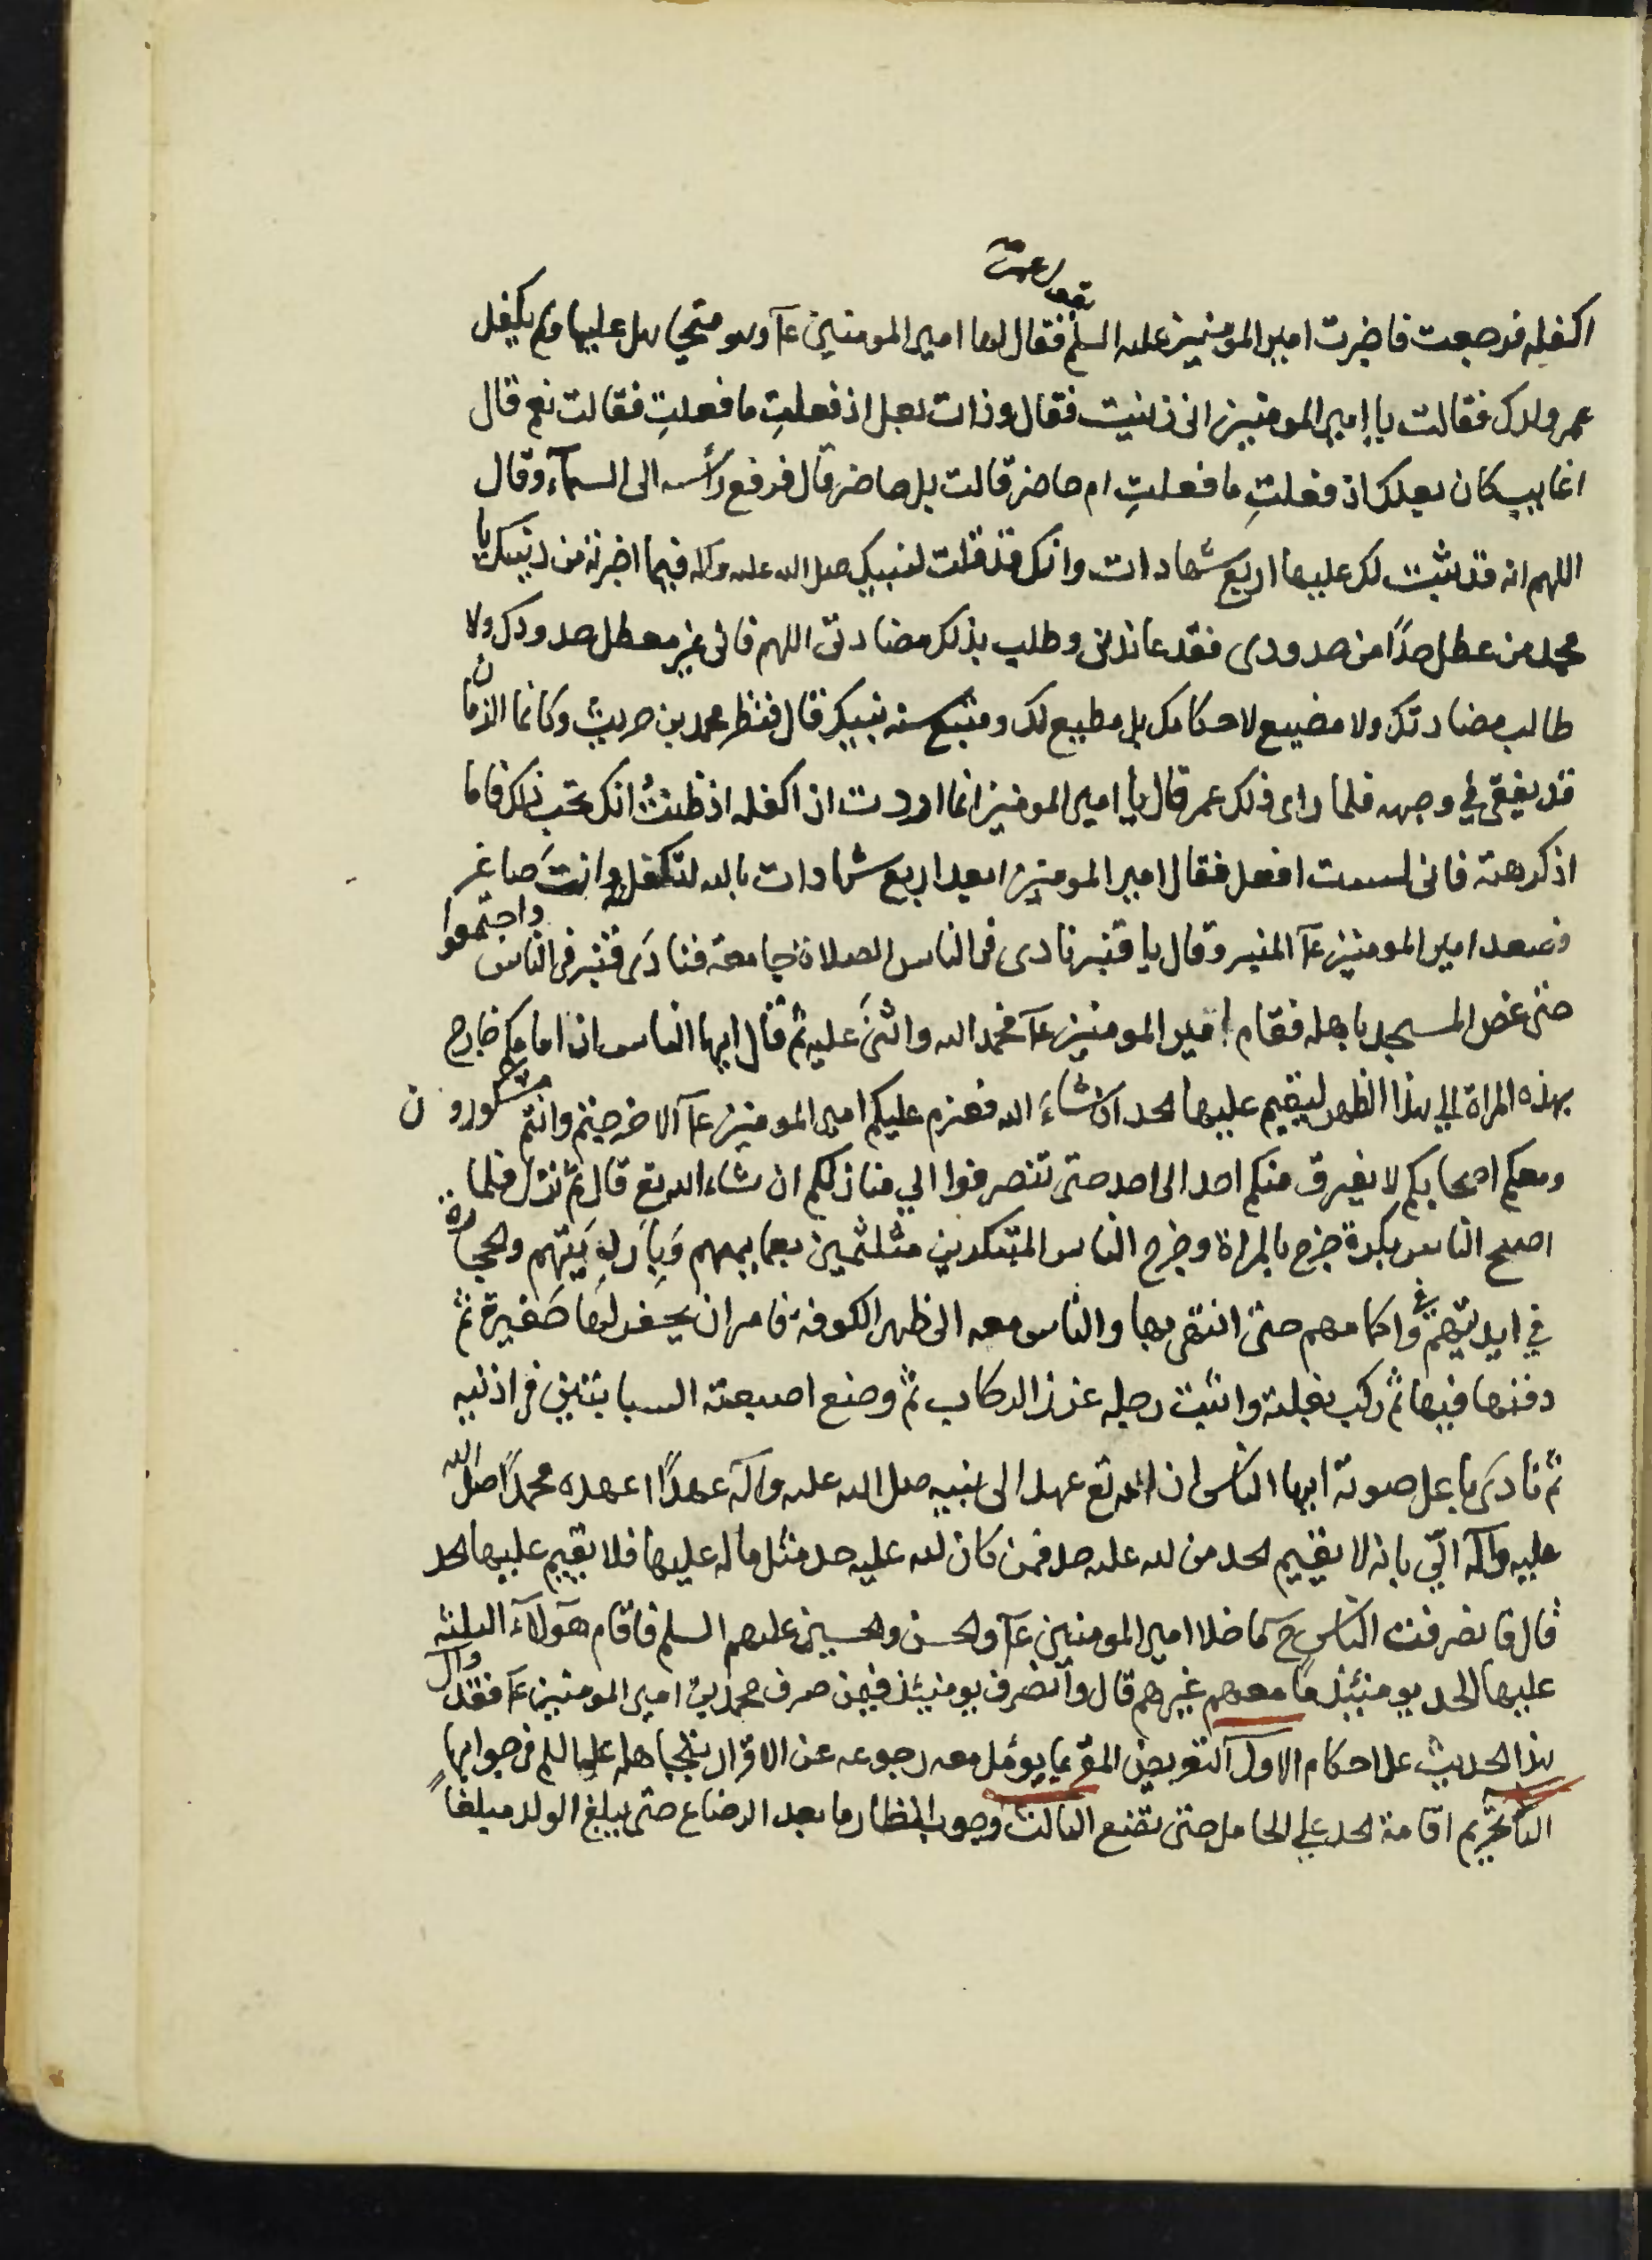 بقول عمر
اكفله فرجعت فاخبرت امير المومنين عليه السلم فقال لها امير المومنين عآ وهو متجاهل عليها ولم يكفل
عمرو ولدك فقالت يا امير المومنين انى زنيت فقال وذات بعل اذ فعلتِ ما فعلتِ فقالت نعم قال
اغايب كان بعلك اذ فعلتِ ما فعلتِ ام حاضر قالت بل حاضر قال فرفع رأسه الى السمآء وقال
اللهم انه قد ثبت لك عليها اربع شهادات وانك قد قلت لنبيك صلى الله عليه وآله فيما اخبرته من دينك يا
محمد من عطل حدًا من حدودى فقد عاندنى وطلب بذلك مضادتى اللهم فانى غير معطل حدودك ولا
طالب مضادتك ولا مضيع لاحكامك بل مطيع لك ومتبع سنه نبيك قال فنظر عمرو بن حريث وكانما الرمان
قد يفقى في وجهه فلما راى ذلك عمر قال يا امير المومنين انما اردت ان اكفله اذ ظننتُ انك تحب ذلك فاما
اذ كرهته فانى لست افعل فقال امير المومنين ابعد اربع شهادات بالله لتكفله وانتَ صاغر
فصعد امير المومنين عآ المنبر وقال يا قنبر نادى فى الناس الصلاة جامعة فنادَى قنبر فى الناس واجتمعوا
حتى غص المسجد باهله فقام امير المومنين عآ فحمد الله واثنَى عليه ثم قال ايها الناس ان امامكم خارج
بهذه المراة الي هذا الظهر ليقيم عليها الحد ان شاءَ الله فعزم عليكم امير المومنين عآ الا خرجتم وانتم متنكرون
ومعكم احجاركم لا يعرف منكم احد الى احد حتى تنصرفوا الي منازلكم ان شاء الله تع قال ثم نزل فلما
اصبح الناس بكرة خرج بالمراة وخرج الناس المتنكرين متلثمين بعمايمهم وَبِاَردِيَتهم والحجارة
في ايديهم وفي اكمامهم حتى انتهى بها والناس معه الى ظهر الكوفه فامر ان يحفر لها حَفيرة ثم
دفنها فيها ثم ركب بغلته واثبت رجله غرز الركاب ثم وضع اصبعته السبابتين فى اذنيه
ثم نادَى باعلى صوته ايها الناس ان الله تع عهد الى نبيه صلى الله عليه وآله عهدًا اعهده محمدًا صلى الله
عليه وآله اليّ بانه لا يقيم الحد من لله عليه حد فمن كان لله عليه حد مثل ما له عليها فلا يقيم عليها الحد
قال فانصرفت الناس ح كما خلا امير المومنين عآ والحسن والحسين عليهم السلم فاقام هَوَلاَء الثلثه
عليها الحد يومئذ ما معهم غيرهم قال وانصرف يومئذ فيمن صرف محمد بن امير المومنين عآ فقد دال
هذا الحديث على احكام الاول التعريض المقر بما يوَمَّل معه رجوعه عن الاقرار بتجاهله عليه السلم فى جوابها
الثا تحريم اقامة الحد علي الحامل حتى تضع الثالث وجوب انتظار ما بعد الرضاع حتى يبلغ الولد مبلغاً